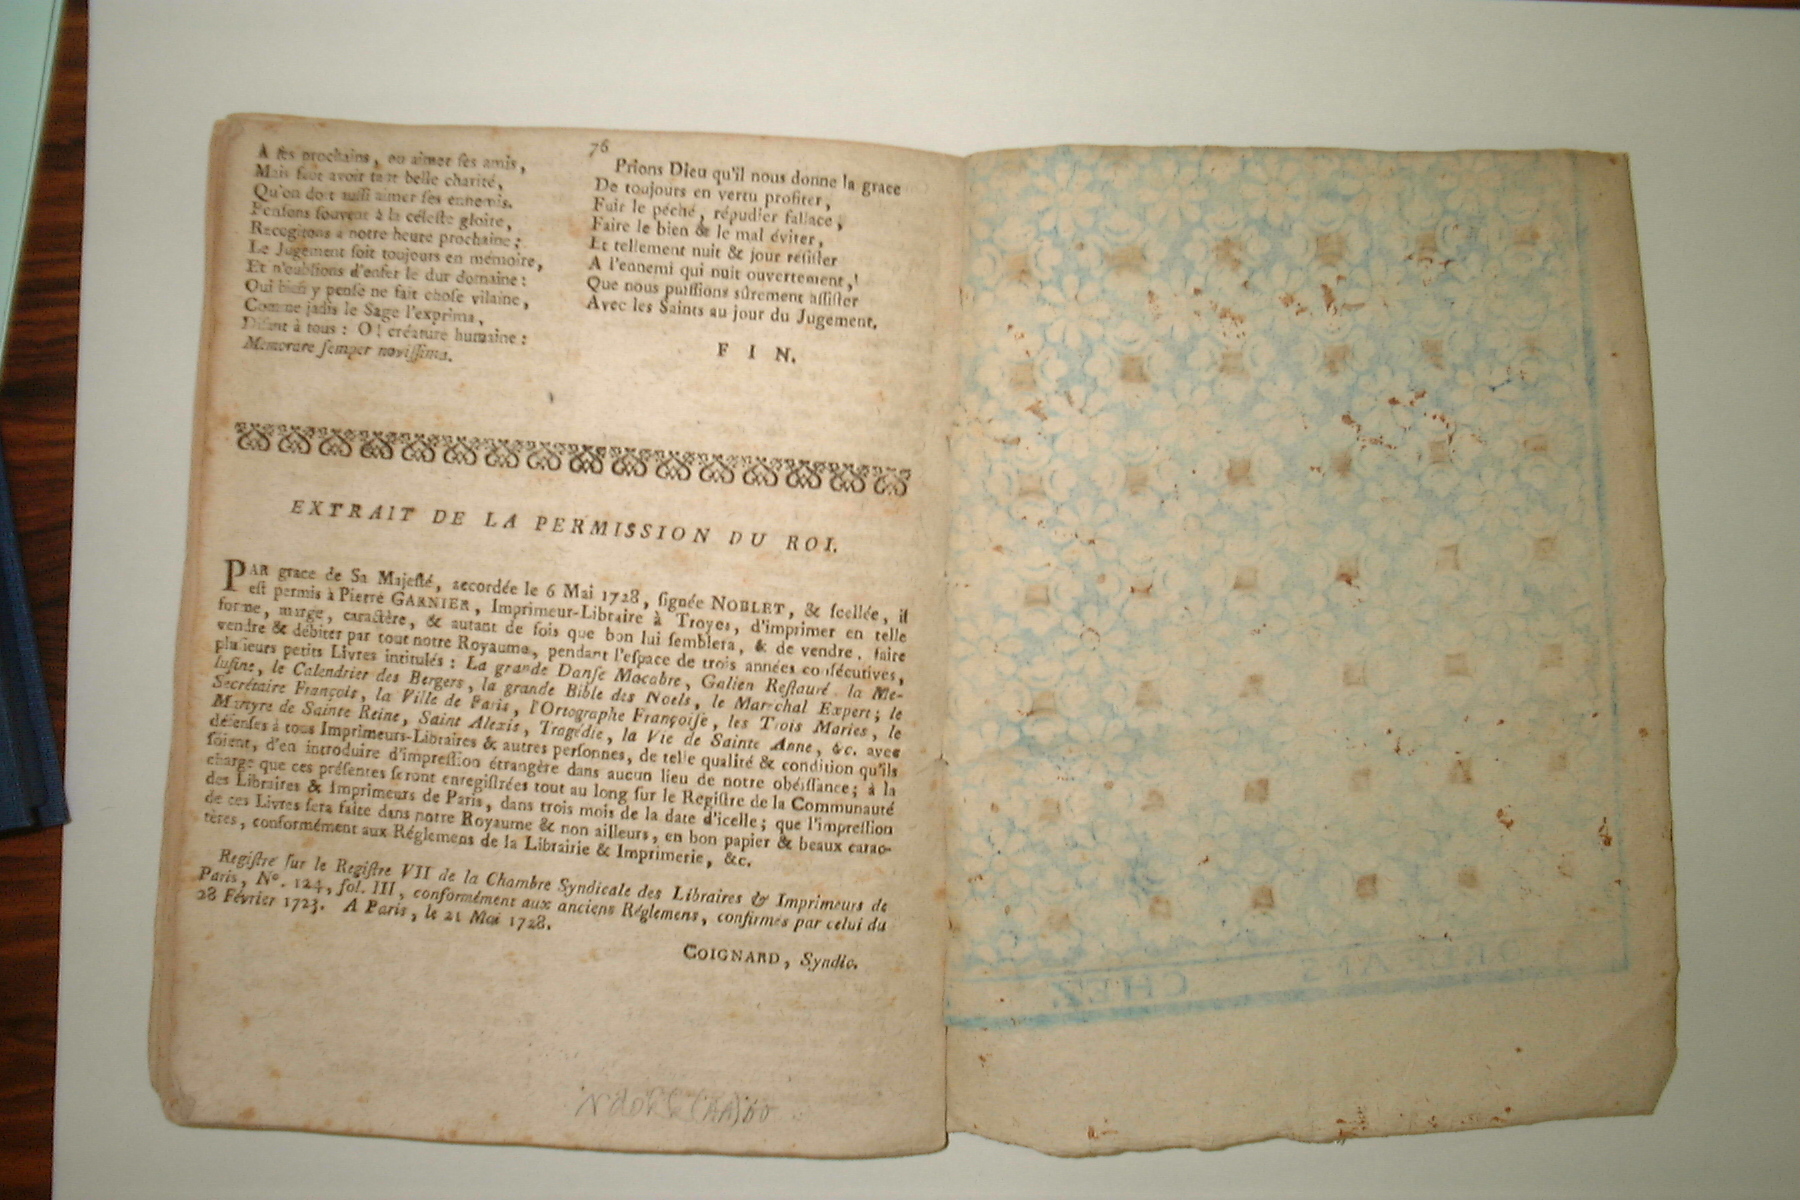 76
A ses prochains, ou aimer ses amis,
Mais faut avoir tant belle charité,
Qu'on doit aussi aimer ses ennemis.
Pensons souvent à la céleste gloire,
Recogitons à notre heure prochaine;
Le Jugement soit toujours en mémoire,
Et n'oublions d'enfer le dur domaine:
Qui bien y pense ne fait chose vilaine,
Comme jadis le Sage l'exprima,
Disant à tous: O! créature humaine:
Memorare semper novissima.
Prions Dieu qu'il nous donne la grace
De toujours en vertu profiter,
Fuir le péché, répudier fallace,
Faire le bien & le mal éviter,
Et tellement nuit & jour résister
A l'ennemi qui nuit ouvertement,
Que nous puissions sûrement assister
Avec les Saints au jour du Jugement.
FIN.
EXTRAIT DE LA PERMISSION DU ROI.
PAR grace de Sa Majesté, accordée le 6 Mai 1728, signée NOBLET, & scellée, il
est permis à Pierre GARNIER, Imprimeur-Libraire à Troyes, d'imprimer en telle
forme, marge, caractère, & autant de fois que bon lui semblera, & de vendre, faire
vendre & débiter par tout notre Royaume, pendant l'espace de trois années consécutives,
plusieurs petits Livres intitulés: La grande Danse Macabre, Galien Restauré, la Me-
lusine, le Calendrier des Bergers, la grande Bible des Noels, le Maréchal Expert; le
Secrétaire François, la Ville de Paris, l'Ortographe Françoise, les Trois Maries, le
Martyre de Sainte Reine, Saint Alexis, Tragédie, la Vie de Sainte Anne, &c. avec
défenses à tous Imprimeurs-Libraires & autres personnes, de telle qualité & condition qu'ils
soient, d'en introduire d'impression étrangère dans aucun lieu de notre obéissance; à la
charge que ces présentes seront enregistrées tout au long sur le Registre de la Communauté
des Libraires & Imprimeurs de Paris, dans trois mois de la date d'icelle; que l'impression
de ces Livres sera faite dans notre Royaume & non ailleurs, en bon papier & beaux carac-
tères, conformément aux Réglemens de la Librairie & Imprimerie, &c.
Registré sur le Registre VII de la Chambre Syndicale des Libraires & Imprimeurs de
Paris, N°. 124, fol. III, conformément aux anciens Réglemens, confirmés par celui du
28 Février 1723. A Paris, le 21 Mai 1728.
COIGNARD, Syndic.
ORLEANS CHEZ